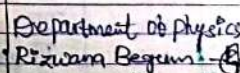 Department of physics
Rizwana Begum